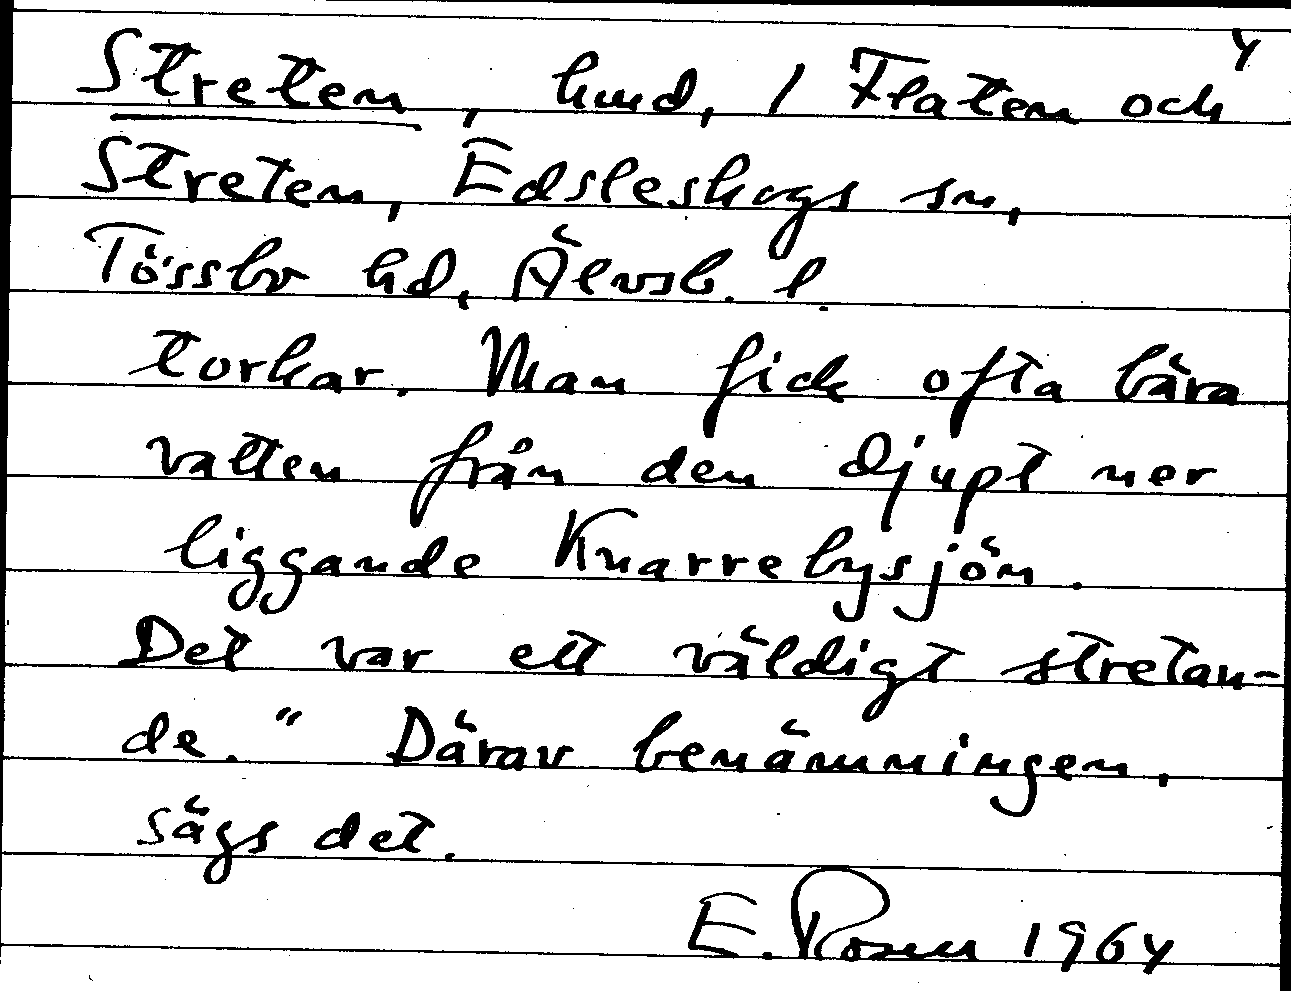 4
Streten, hmd, 1 Flaten och
Streten, Edsleskogs sn,
Tössbo hd, Älvsb. l.
torkar. Man fick ofta bära
vatten från den djupt ner
liggande Knarrebysjön.
Det var ett väldigt stretan-
de." Därav benämningen,
sägs det.
E. Rosen 1964